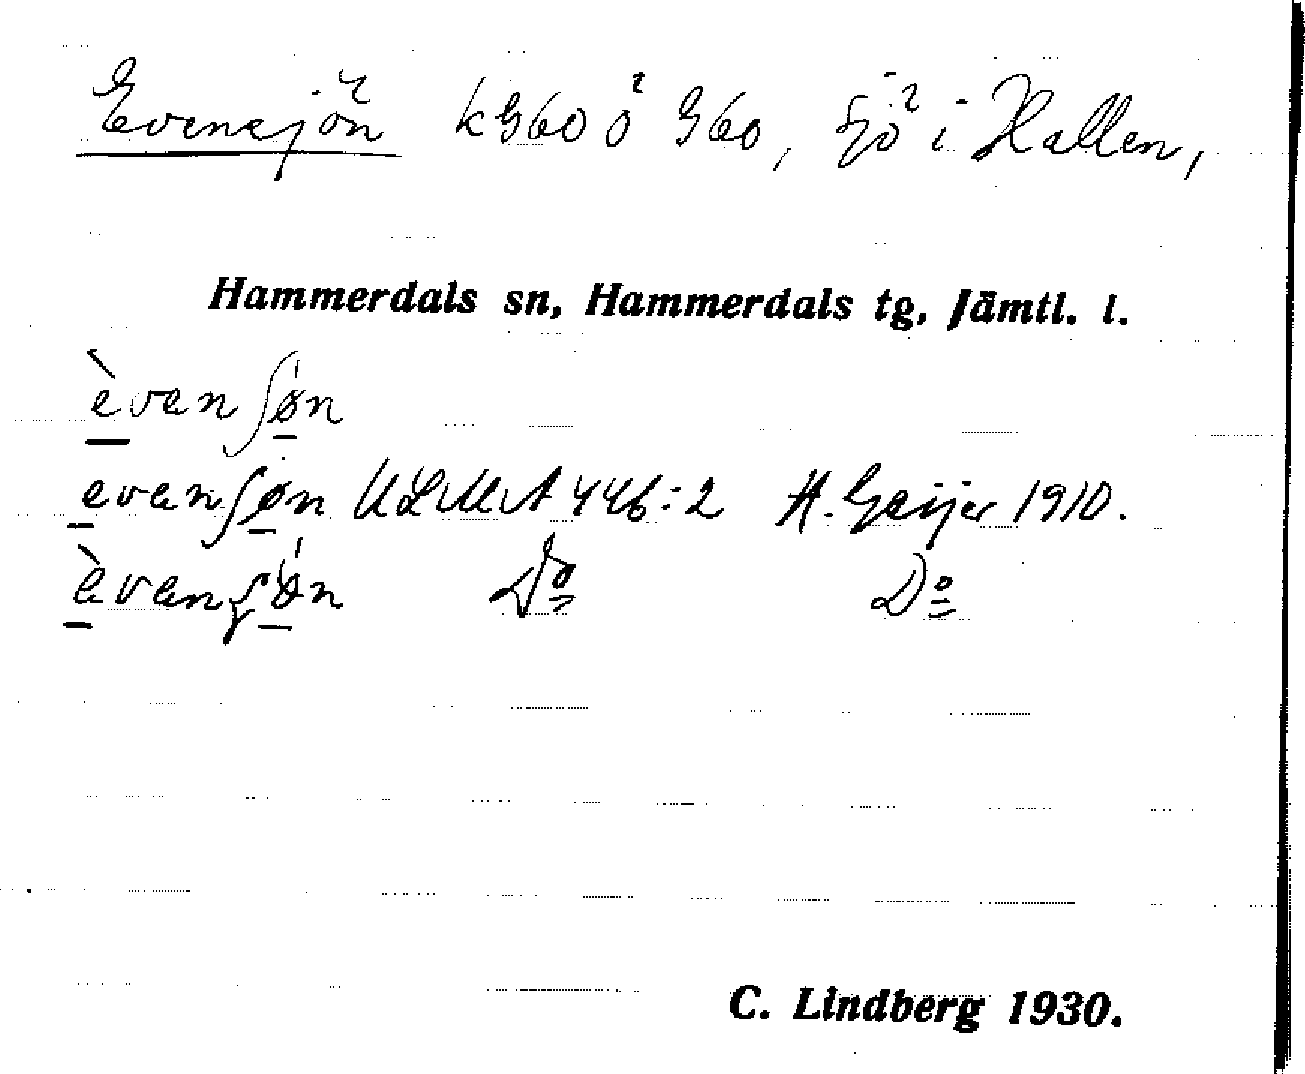 Evensjön kG60 ö G60, sjö i Hallen,
Hammerdals sn, Hammerdals tg, Jämtl. l.
èvanʃøn
evanʃøn ULMA 446:2 H. Geijer 1910.
èvanʃøn Dº Dº
C. Lindberg 1930.